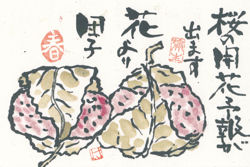 桜の開花予報が
出ます
花より
団子
春